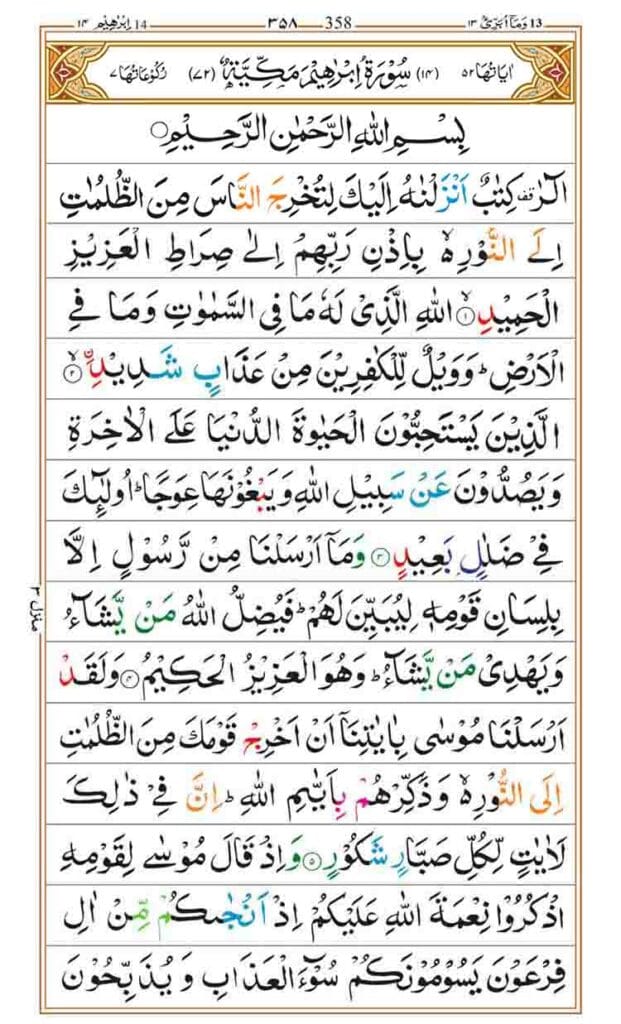 ١٤ اِبْرٰهِيْم 14 ٣٥٨ 358 ١٣ وَمَآ اُبَرِّئُ 13
اٰيَاتُهَا ٥٢ (١٤) سُوْرَةُ اِبْرٰهِيْمَ مَكِّيَّةٌ (٧٢) رُكُوْعَاتُهَا ٧
بِسْمِ اللّٰهِ الرَّحْمٰنِ الرَّحِيْمِ ۝
الٓرٰ ۚ كِتٰبٌ اَنْزَلْنٰهُ اِلَيْكَ لِتُخْرِجَ النَّاسَ مِنَ الظُّلُمٰتِ
اِلَى النُّوْرِ ۬ۙ بِاِذْنِ رَبِّهِمْ اِلٰى صِرَاطِ الْعَزِيْزِ
الْحَمِيْدِ ۙ﴿١﴾ اللّٰهِ الَّذِيْ لَهٗ مَا فِى السَّمٰوٰتِ وَمَا فِى
الْاَرْضِ ؕ وَوَيْلٌ لِّلْكٰفِرِيْنَ مِنْ عَذَابٍ شَدِيْدِ ۙ﴿٢﴾
الَّذِيْنَ يَسْتَحِبُّوْنَ الْحَيٰوةَ الدُّنْيَا عَلَى الْاٰخِرَةِ
وَيَصُدُّوْنَ عَنْ سَبِيْلِ اللّٰهِ وَيَبْغُوْنَهَا عِوَجًا ؕ اُولٰٓئِكَ
فِيْ ضَلٰلٍۭ بَعِيْدٍ ﴿٣﴾ وَمَآ اَرْسَلْنَا مِنْ رَّسُوْلٍ اِلَّا
بِلِسَانِ قَوْمِهٖ لِيُبَيِّنَ لَهُمْ ؕ فَيُضِلُّ اللّٰهُ مَنْ يَّشَآءُ
وَيَهْدِيْ مَنْ يَّشَآءُ ؕ وَهُوَ الْعَزِيْزُ الْحَكِيْمُ ﴿٤﴾ وَلَقَدْ
اَرْسَلْنَا مُوْسٰى بِاٰيٰتِنَآ اَنْ اَخْرِجْ قَوْمَكَ مِنَ الظُّلُمٰتِ
اِلَى النُّوْرِ ۬ۙ وَذَكِّرْهُمْ بِاَيّٰىمِ اللّٰهِ ؕ اِنَّ فِيْ ذٰلِكَ
لَاٰيٰتٍ لِّكُلِّ صَبَّارٍ شَكُوْرٍ ﴿٥﴾ وَاِذْ قَالَ مُوْسٰى لِقَوْمِهِ
اذْكُرُوْا نِعْمَةَ اللّٰهِ عَلَيْكُمْ اِذْ اَنْجٰىكُمْ مِّنْ اٰلِ
فِرْعَوْنَ يَسُوْمُوْنَكُمْ سُوْٓءَ الْعَذَابِ وَيُذَبِّحُوْنَ
منزل ٣